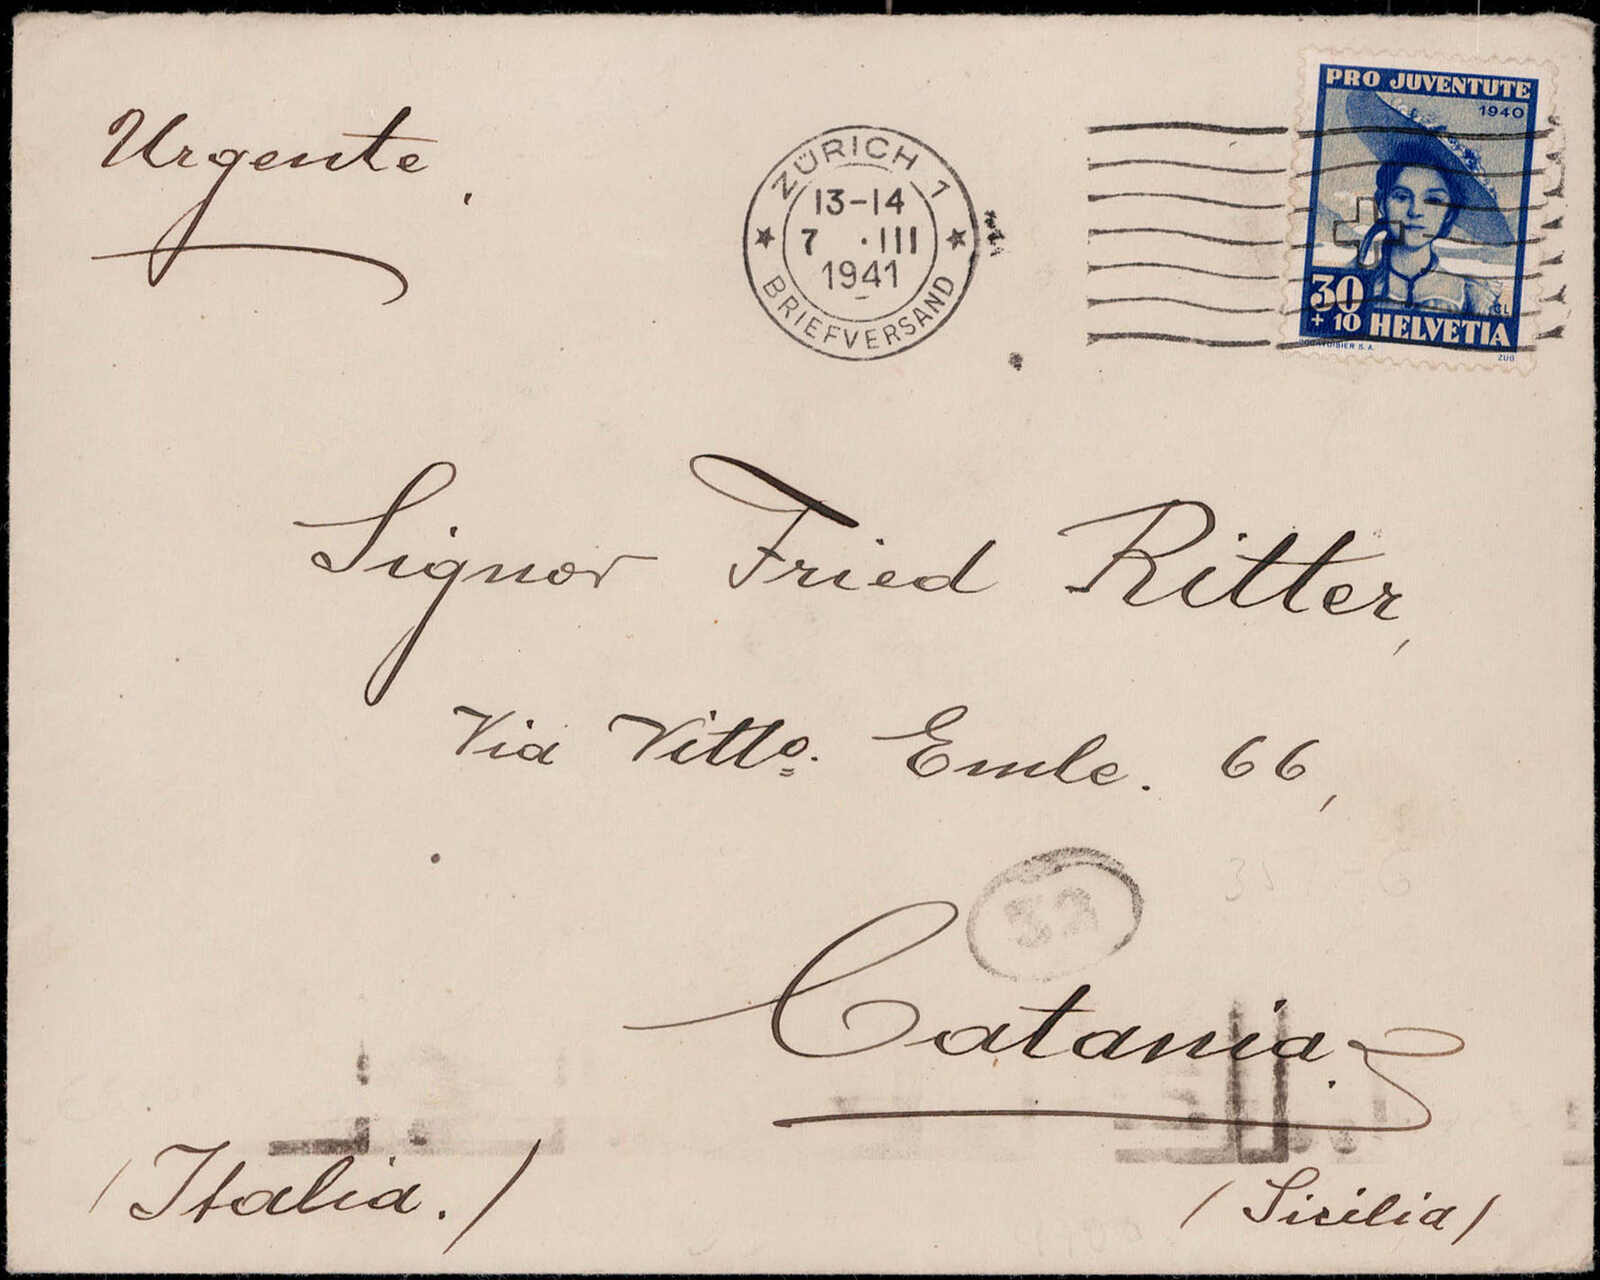 Urgente.
ZÜRICH 1
13-14
7 · III
1941
BRIEFVERSAND
PRO JUVENTUTE
1940
30
+ 10 HELVETIA
COURVOISIER S.A.
Signor Fried Ritter,
Via Vitto. Emle. 66,
Catania.
(Italia.)
(Sicilia)